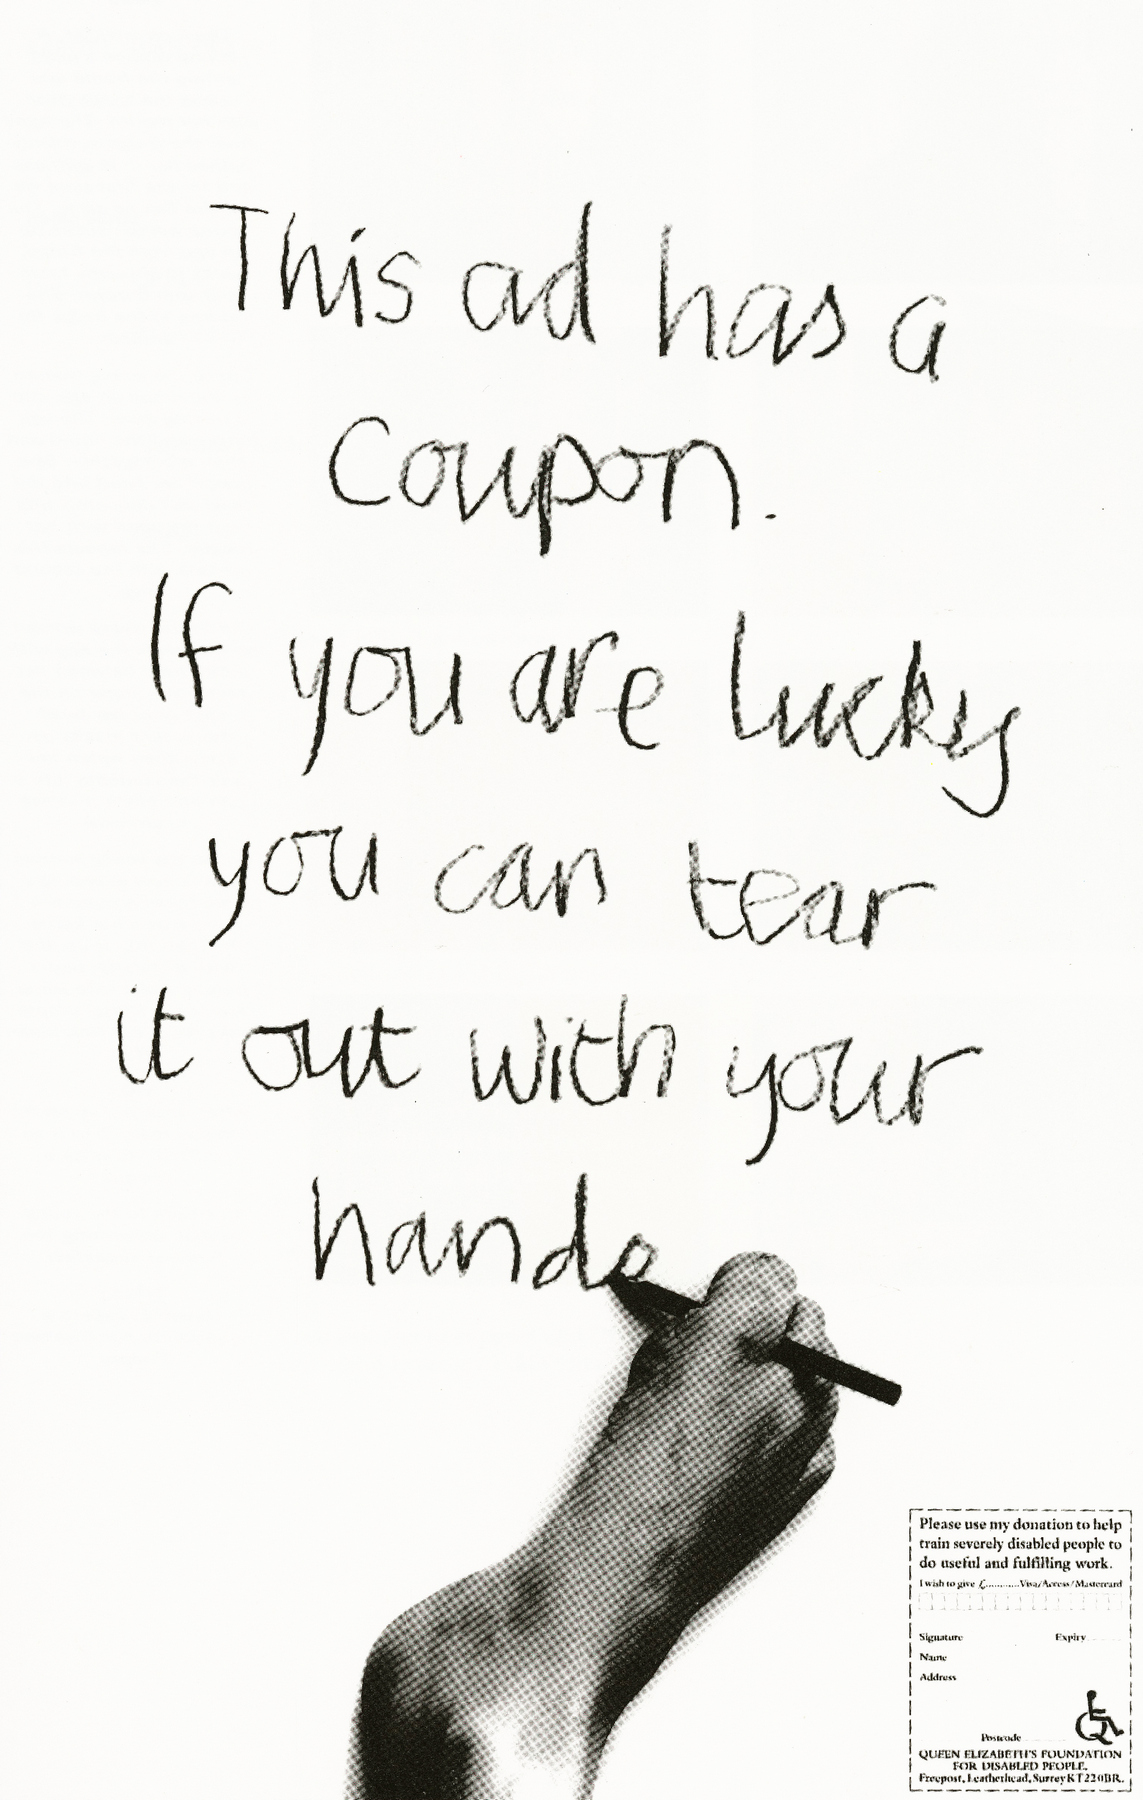 This ad has a
coupon.
If you are lucky
you can tear
it out with your
hands
Please use my donation to help
train severely disabled people to
do useful and fulfilling work.
I wish to give £............Visa/Access/Mastercard
Signature Expiry
Name
Address
Postcode
QUEEN ELIZABETH'S FOUNDATION
FOR DISABLED PEOPLE.
Freepost, Leatherhead, Surrey KT22 0BR.